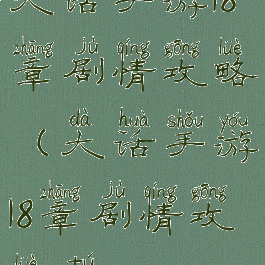 大话手游18
zhāng jù qíng gōng lüè
章剧情攻略
dà huà shǒu yóu
(大话手游
zhāng jù qíng gōng
18章剧情攻